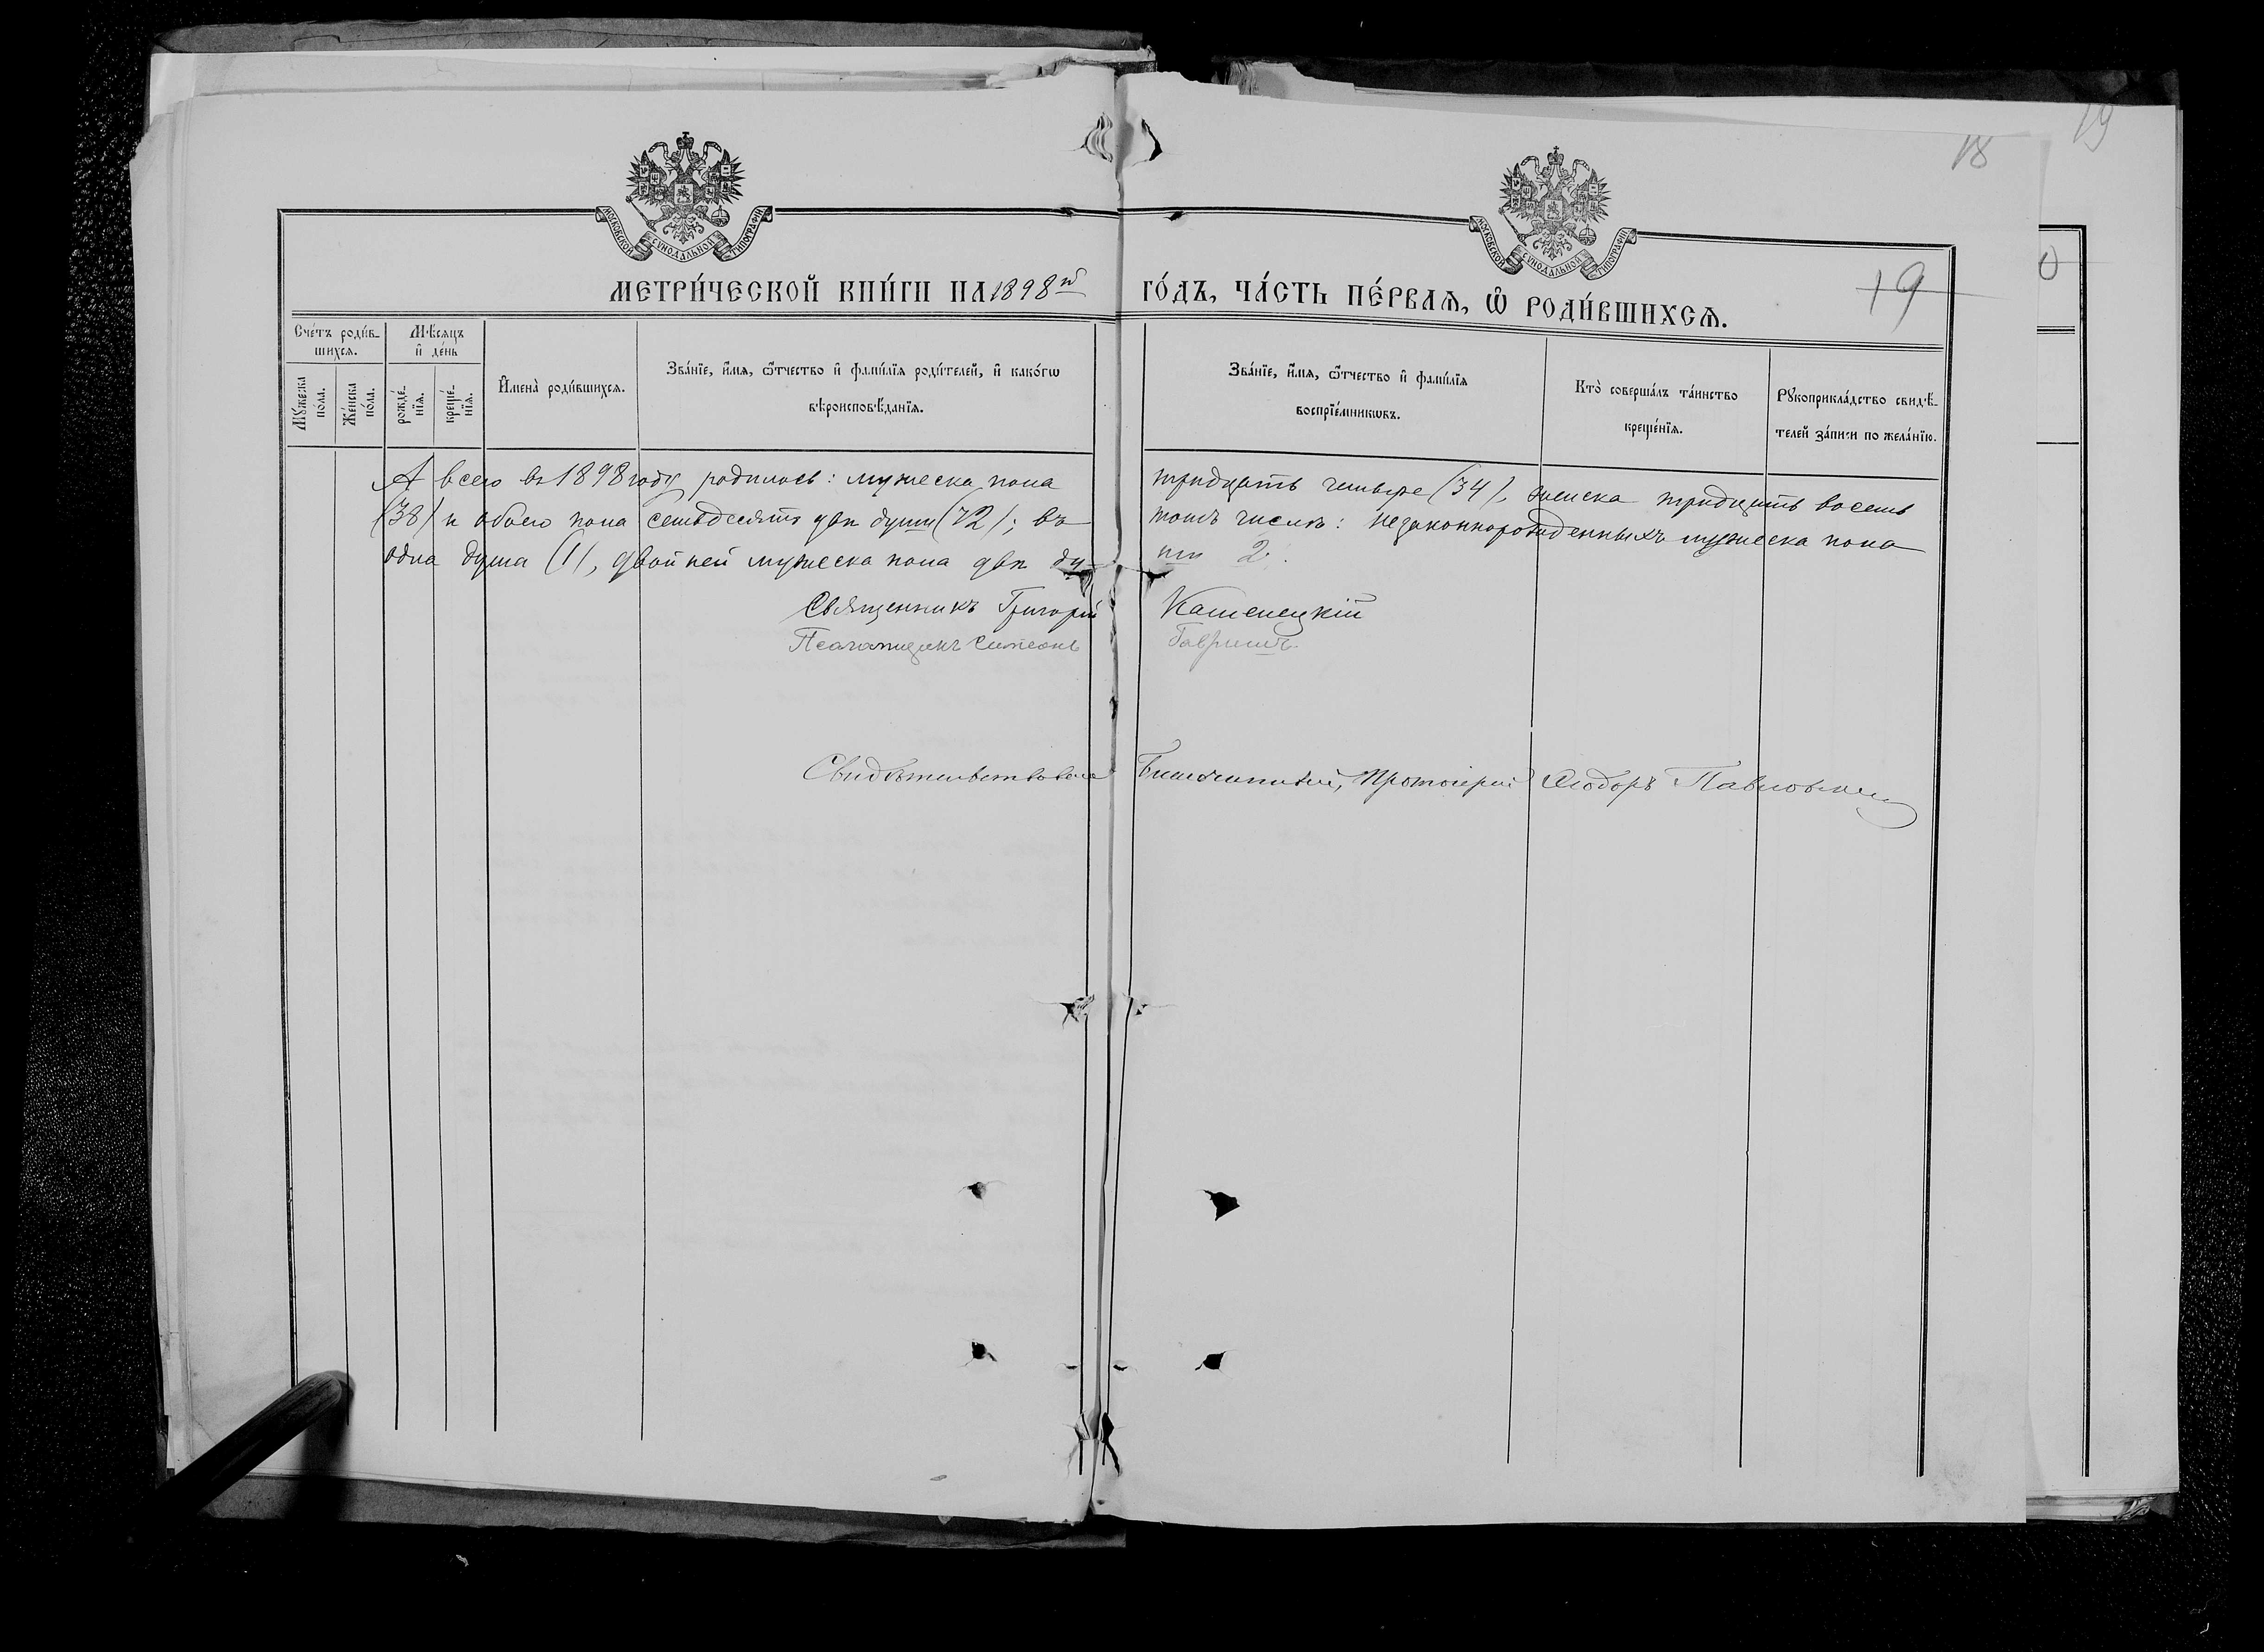 18
19
МОСКОВСКОЙ СУНОДАЛЬНОЙ ТИПОГРАФІИ
МОСКОВСКОЙ СУНОДАЛЬНОЙ ТИПОГРАФІИ
19
МЕТРИ́ЧЕСКОЙ КНИ́ГИ НА 1898й ГО́ДЪ, ЧА́СТЬ ПЕ́РВАѦ, Ѡ҆ РОДИ́ВШИХСѦ.
Сче́тъ роди́в-
шихсѧ.
Мѣ́сѧцъ
и҆ де́нь
Мꙋ́жеска
пола.
Же́нска
по́ла.
рожде́-
нїѧ.
креще́-
нїѧ.
И҆мена̀ роди́вшихсѧ.
Зва́нїе, и҆́мѧ, ѻ҆́тчество и҆ фами́лїѧ роди́телей, и҆ како́гѡ
вѣроисповѣ́данїѧ.
Зва́нїе, и҆́мѧ, ѻ҆́тчество и҆ фами́лїѧ
воспрїе́мникѡвъ.
Кто̀ соверша́лъ та́инство
креще́нїѧ.
Рꙋкоприкла́дство свидѣ́-
телей за́писи по жела́нїю.
А всего въ 1898 году родилось: мужеска пола тридцать четыре (34), женска тридцать восемь
(38) и обоего пола семьдесятъ двѣ души (72); въ томъ числѣ: незаконнорожденныхъ мужеска пола
одна душа (1), двойней мужеска пола двѣ ду- ши 2.
Священникъ Григорій Каменецкій
Псаломщикъ Симеонъ
Свидѣтельствовалъ Благочинный, Протоіерей Ѳеодоръ Павловскій